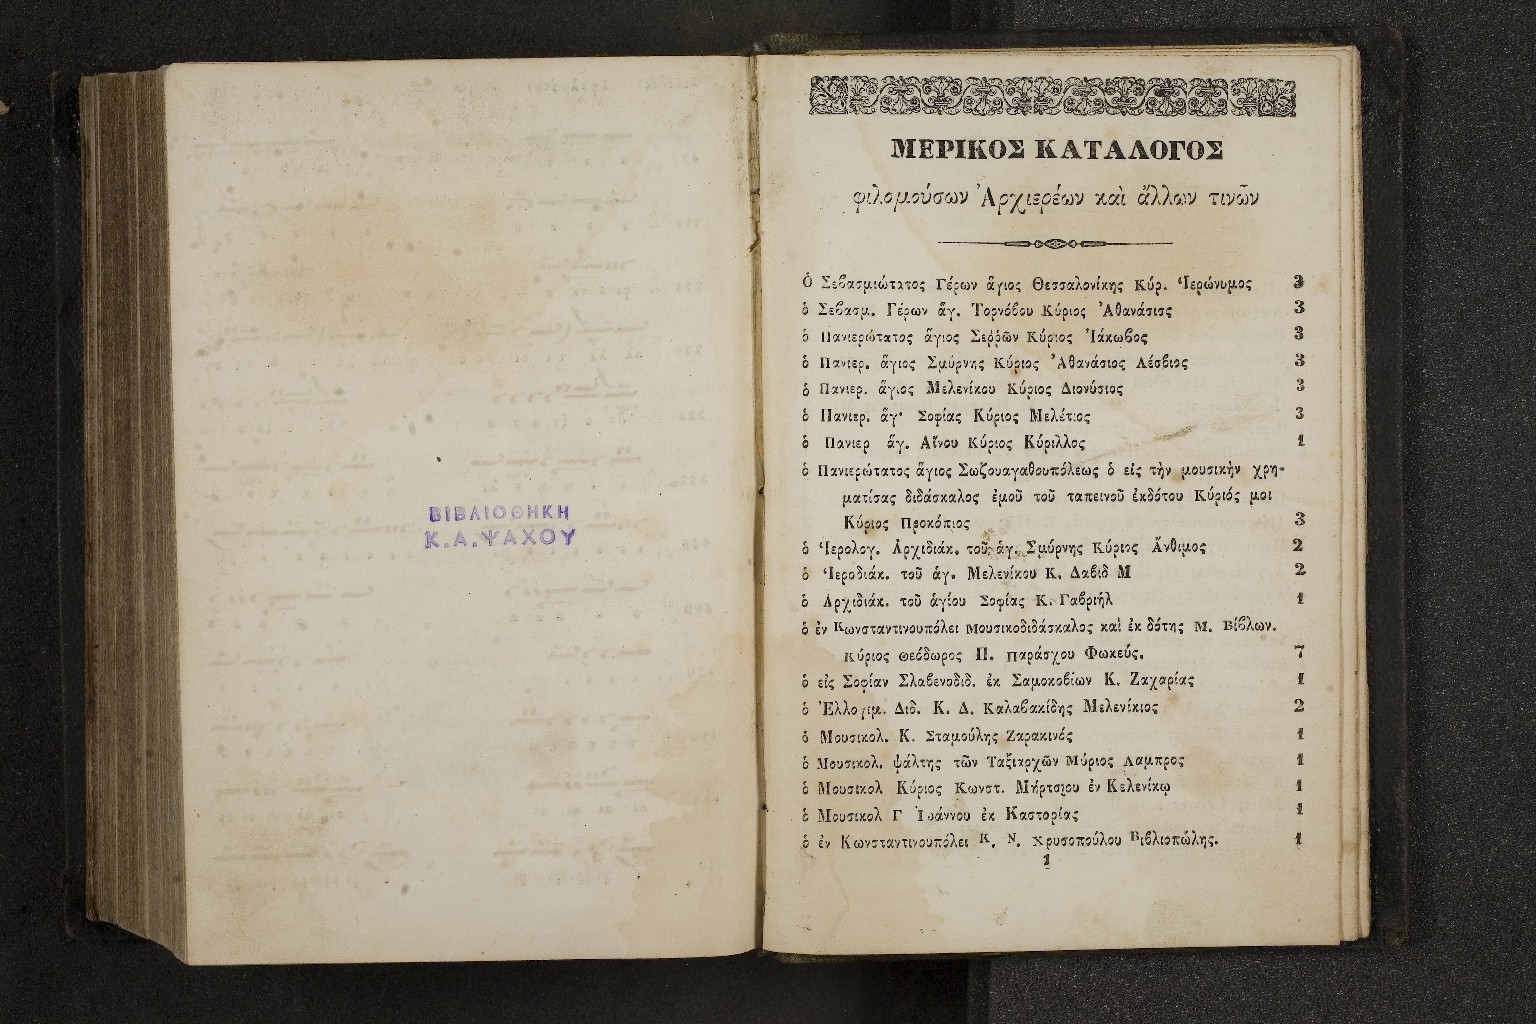 ΒΙΒΛΙΟΘΗΚΗ
Κ.Α.ΨΑΧΟΥ
ΜΕΡΙΚΟΣ ΚΑΤΑΛΟΓΟΣ
φιλομούσων Ἀρχιερέων καὶ ἄλλων τινῶν
Ὁ Σεβασμιώτατος Γέρων ἅγιος Θεσσαλονίκης Κύρ. Ἱερώνυμος 3
ὁ Σεβασμ. Γέρων ἅγ. Τορνόβου Κύριος Ἀθανάσιος 3
ὁ Πανιερώτατος ἅγιος Σεῤῥῶν Κύριος Ἰάκωβος 3
ὁ Πανιερ. ἅγιος Σμύρνης Κύριος Ἀθανάσιος Λέσβιος 3
ὁ Πανιερ. ἅγιος Μελενίκου Κύριος Διονύσιος 3
ὁ Πανιερ. ἅγ· Σοφίας Κύριος Μελέτιος 3
ὁ Πανιερ ἅγ. Αἴνου Κύριος Κύριλλος 1
ὁ Πανιερώτατος ἅγιος Σωζουαγαθουπόλεως ὁ εἰς τὴν μουσικὴν χρη-
ματίσας διδάσκαλος ἐμοῦ τοῦ ταπεινοῦ ἐκδότου Κύριός μοι
Κύριος Προκόπιος 3
ὁ Ἱερολογ. Ἀρχιδιάκ. τοῦ ἁγ. Σμύρνης Κύριος Ἄνθιμος 2
ὁ Ἱεροδιάκ. τοῦ ἁγ. Μελενίκου Κ. Δαβὶδ Μ 2
ὁ Ἀρχιδιάκ. τοῦ ἁγίου Σοφίας Κ. Γαβριήλ 1
ὁ ἐν Κωνσταντινουπόλει Μουσικοδιδάσκαλος καὶ ἐκ δότης Μ. Βίβλων.
Κύριος Θεόδωρος Π. Παράσχου Φωκεύς. 7
ὁ εἰς Σοφίαν Σλαβενοδιδ. ἐκ Σαμοκοβίων Κ. Ζαχαρίας 1
ὁ Ἐλλογιμ. Διδ. Κ. Δ. Καλαβακίδης Μελενίκιος 2
ὁ Μουσικολ. Κ. Σταμούλης Ζαρακινός 1
ὁ Μουσικολ. ψάλτης τῶν Ταξιαρχῶν Μύριος Λαμπρος 1
ὁ Μουσικολ Κύριος Κωνστ. Μήρτσιου ἐν Κελενίκῳ 1
ὁ Μουσικολ Γ Ἰωάννου ἐκ Καστορίας 1
ὁ ἐν Κωνσταντινουπόλει Κ. Ν. Χρυσοπούλου Βιβλιοπώλης. 1
1